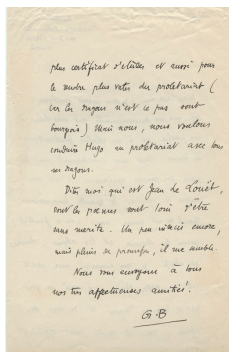 plus certificat d'études et aussi pour
le rendre plus vates du prolétariat (
car les dragons n'est ce pas sont
bourgeois) Mais nous, nous voulons
conduire Hugo au prolétariat avec tous
ses dragons.
Dites moi qui est Jean de
dont les poèmes sont loin d'être
sans mérite. Un peu encore,
mais pleins de promesses, il me semble.
Nous vous envoyons à tous
nos très affectueuses amitiés.
G.B